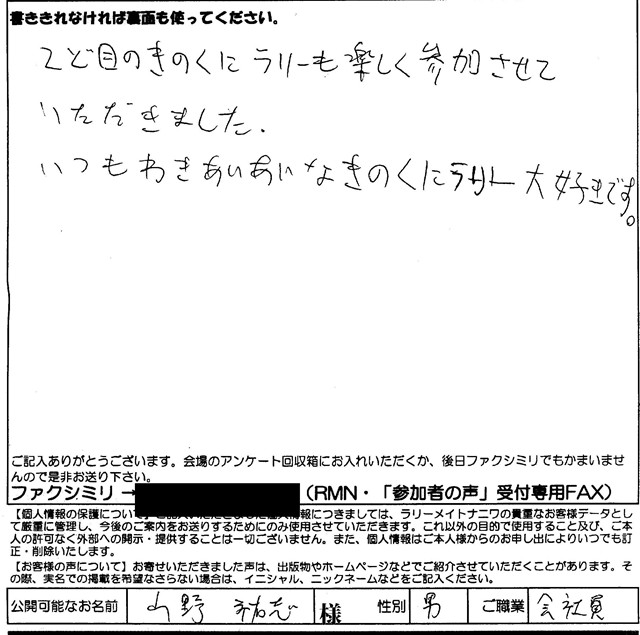 書ききれなければ裏面も使ってください。
2ど目のきのくにラリーも楽しく参加させて
いただきました.
いつもわきあいあいなきのくにラリー大好きです。
ご記入ありがとうございます。会場のアンケート回収箱にお入れいただくか、後日ファクシミリでもかまいませ
んので是非お送り下さい。
ファクシミリ→ (RMN・「参加者の声」受付専用FAX)
【個人情報の保護について】ご記入いただきました個人情報につきましては、ラリーメイトナニワの貴重なお客様データとし
て厳重に管理し、今後のご案内をお送りするためにのみ使用させていただきます。これ以外の目的で使用すること及び、ご本
人の許可なく外部への開示・提供することは一切ございません。また、個人情報はご本人様からのお申し出によりいつでも訂
正・削除いたします。
【お客様の声について】お寄せいただきました声は、出版物やホームページなどでご紹介させていただくことがあります。そ
の際、実名での掲載を希望なさらない場合は、イニシャル、ニックネームなどをご記入ください。
公開可能なお名前 山野 祐志 様 性別 男 ご職業 会社員